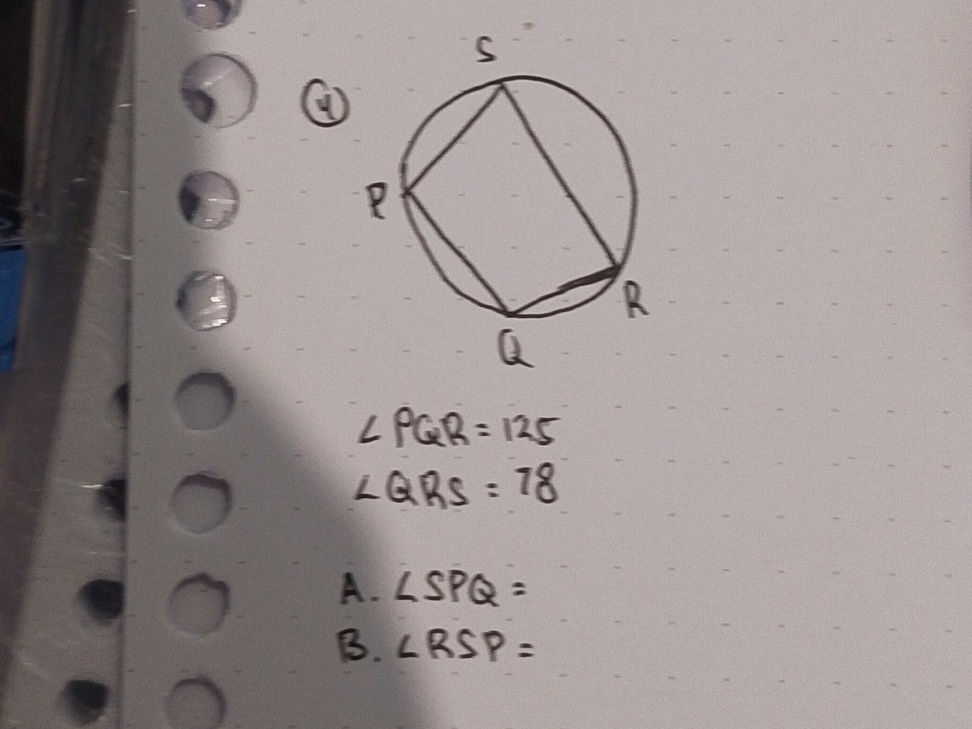 ④
S
P
R
Q
∠PQR = 125
∠QRS = 78
A. ∠SPQ =
B. ∠RSP =